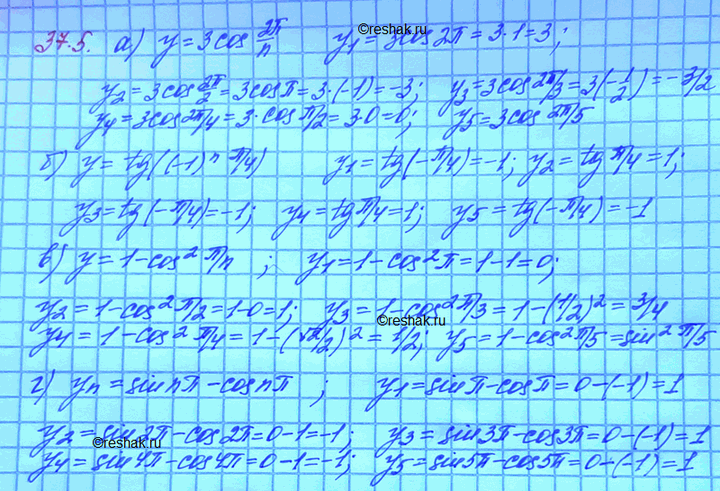 ©reshak.ru
37.5. а) y = 3cos 2π/n y₁ = 3cos2π = 3·1 = 3;
y₂ = 3cos 2π/2 = 3cosπ = 3·(-1) = -3; y₃ = 3cos 2π/3 = 3(-1/2) = -3/2
y₄ = 3cos 2π/4 = 3·cos π/2 = 3·0 = 0; y₅ = 3cos 2π/5
б) y = tg((-1)ⁿ π/4) y₁ = tg(-π/4) = -1; y₂ = tg π/4 = 1;
y₃ = tg(-π/4) = -1; y₄ = tg π/4 = 1; y₅ = tg(-π/4) = -1
в) y = 1 - cos² π/n ; y₁ = 1 - cos²π = 1 - 1 = 0;
y₂ = 1 - cos² π/2 = 1 - 0 = 1; y₃ = 1 - cos² π/3 = 1 - (1/2)² = 3/4
©reshak.ru
y₄ = 1 - cos² π/4 = 1 - (√2/2)² = 1/2; y₅ = 1 - cos² π/5 = sin² π/5
г) yₙ = sin nπ - cos nπ ; y₁ = sinπ - cosπ = 0 - (-1) = 1
y₂ = sin2π - cos2π = 0 - 1 = -1; y₃ = sin3π - cos3π = 0 - (-1) = 1
©reshak.ru
y₄ = sin4π - cos4π = 0 - 1 = -1; y₅ = sin5π - cos5π = 0 - (-1) = 1